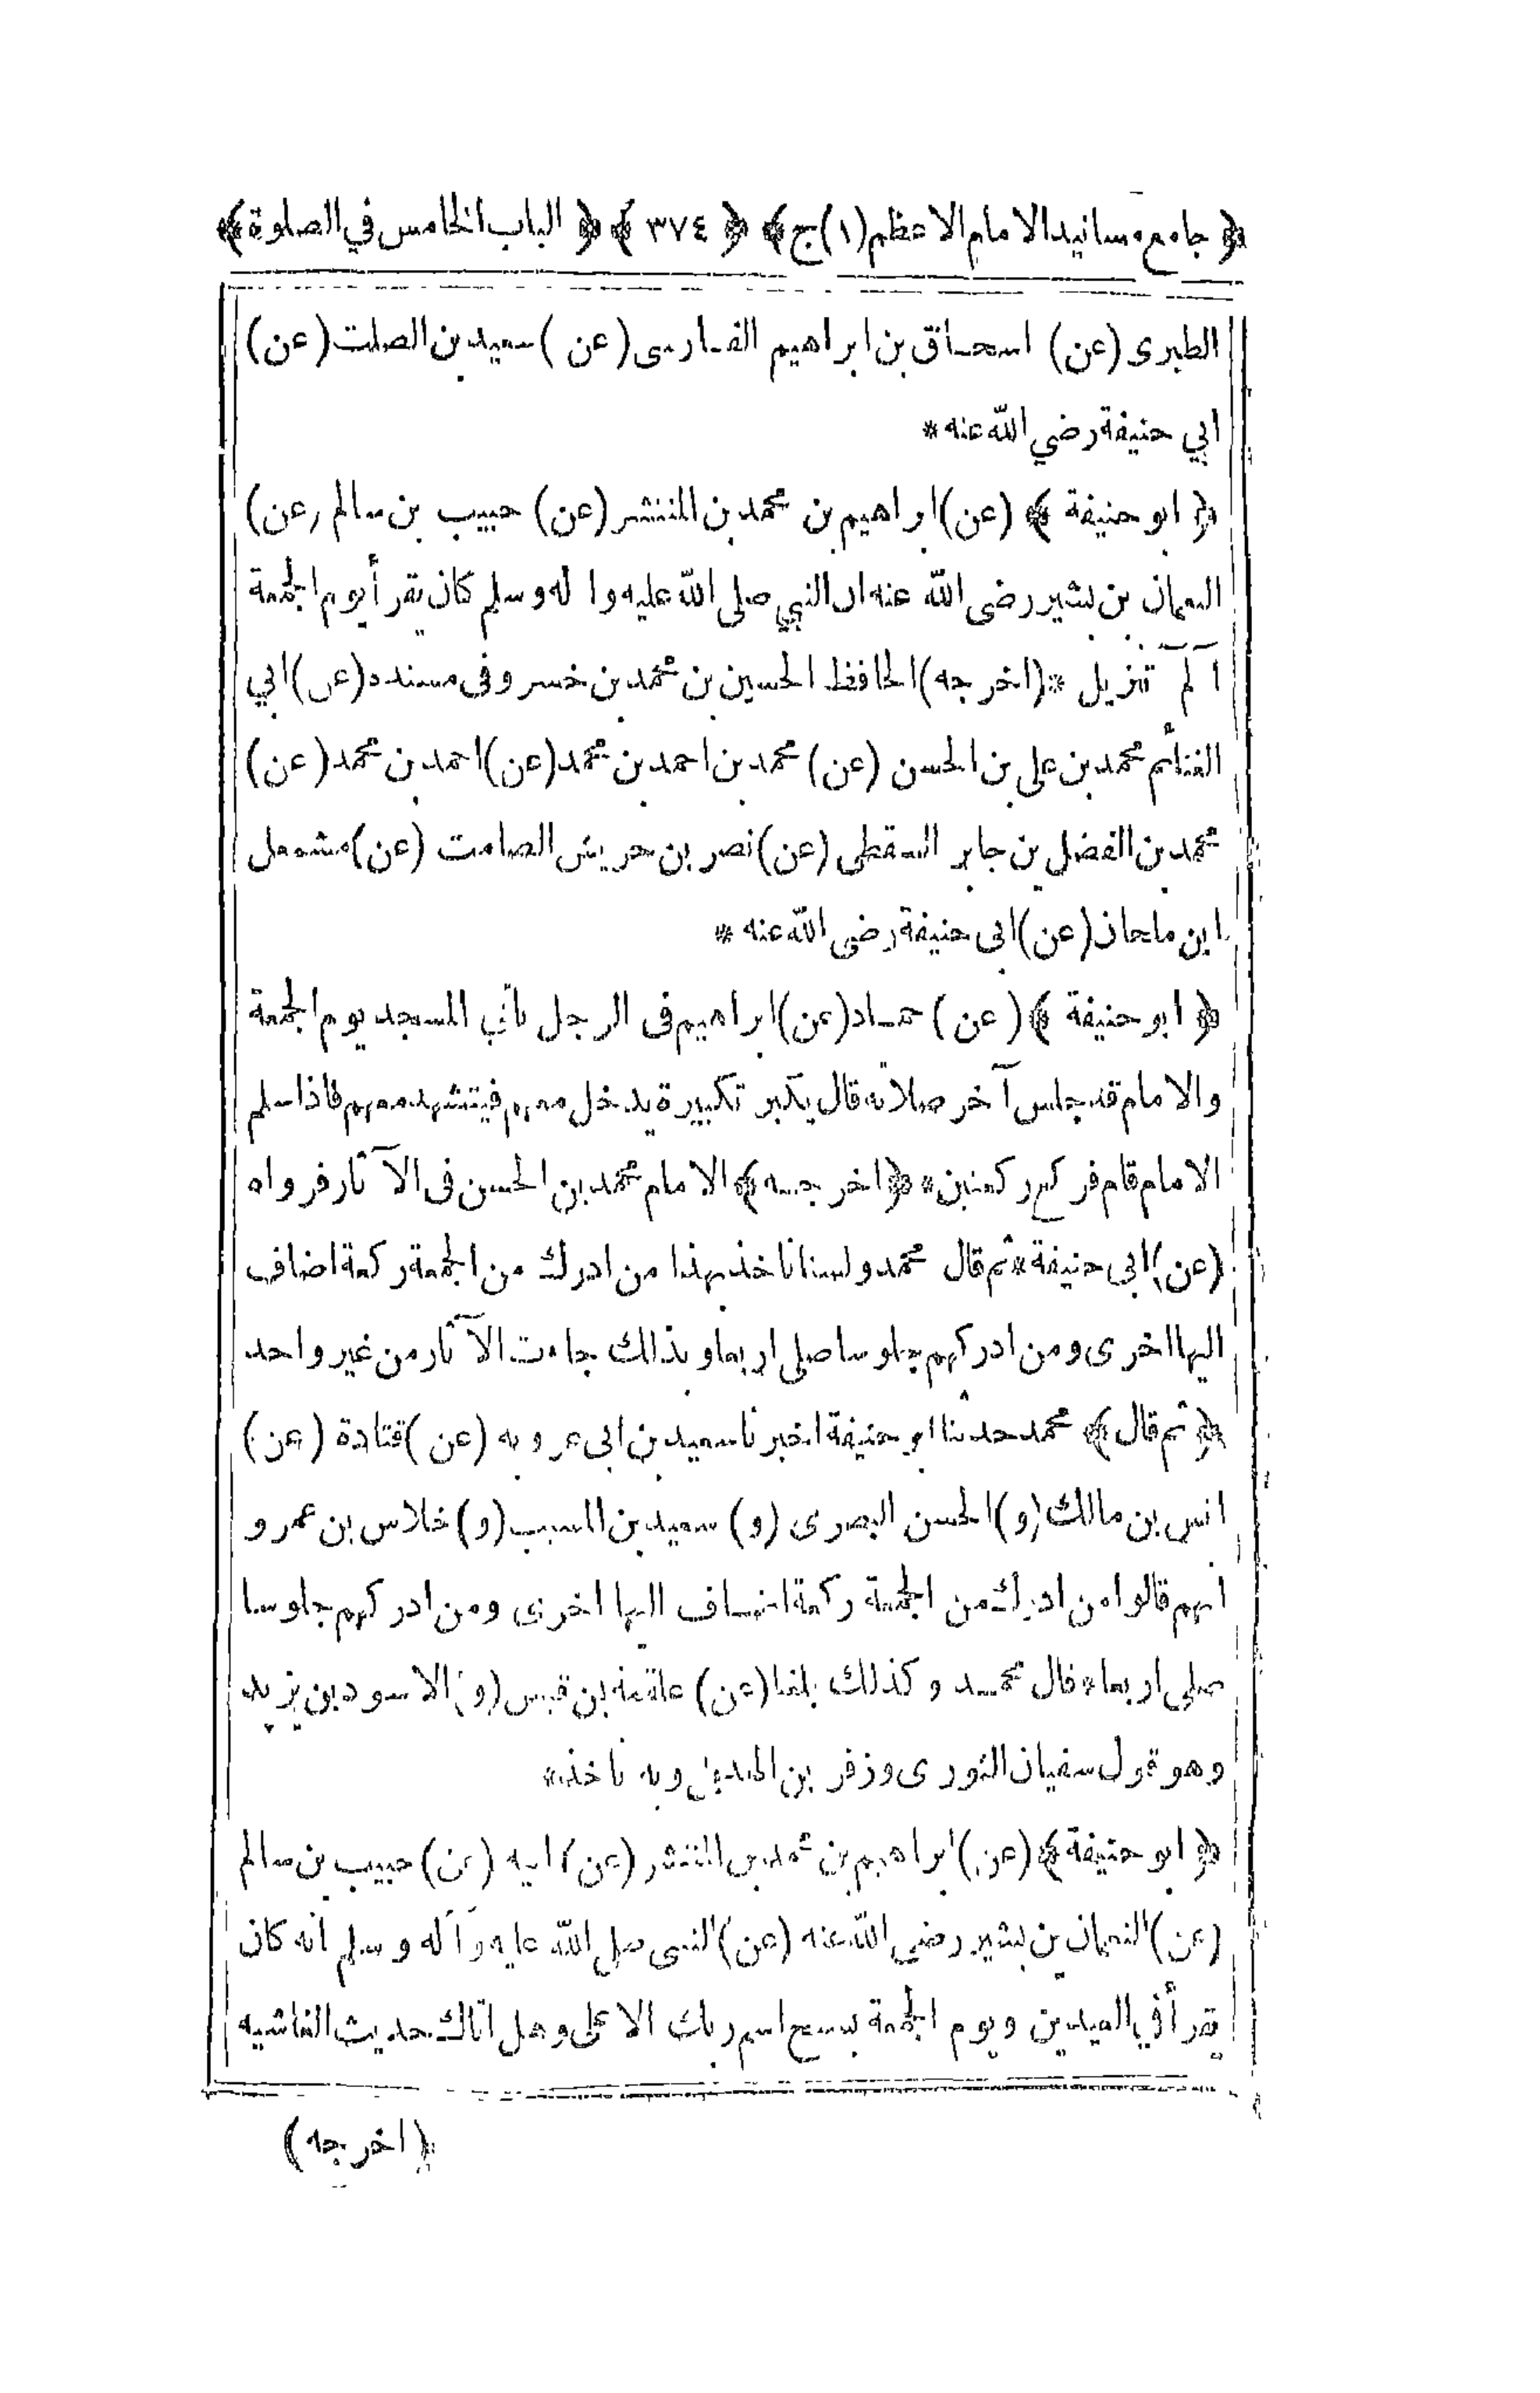 ﴿ جامع مسانيد الامام الاعظم (١) ج ﴾ ﴿ ٣٧٤ ﴾ ﴿ الباب الخامس في الصلوة ﴾
الطبرى (عن) اسحاق بن ابراهيم الفارسى (عن) سعيد بن الصلت (عن)
ابي حنيفة رضي الله عنه *
﴿ ابو حنيفة ﴾ (عن) ابراهيم بن محمد بن المنتشر (عن) حبيب بن سالم (عن)
النعمان بن بشير رضى الله عنه ان النبي صلى الله عليه وا له وسلم كان يقرأ يوم الجمعة
آلم تنزيل * (اخرجه) الحافظ الحسين بن محمد بن خسرو فى مسنده (عن) ابي
الغنائم محمد بن على بن الحسن (عن) محمد بن احمد بن محمد (عن) احمد بن محمد (عن)
محمد بن الفضل بن جابر السقطى (عن) نصر بن حريش الصامت (عن) مشمعل
ابن ملحان (عن) ابى حنيفة رضى الله عنه *
﴿ ابو حنيفة ﴾ (عن) حماد (عن) ابراهيم فى الرجل يأتي المسجد يوم الجمعة
والامام قد جلس آخر صلاته قال يكبر تكبيرة يدخل معهم فيتشهد معهم فاذا سلم
الامام قام فركع ركعتين * ﴿ اخرجه ﴾ الامام محمد بن الحسن فى الآثار فرواه
(عن) ابى حنيفة * ثم قال محمد ولسنا ناخذ بهذا من ادرك من الجمعة ركعة اضاف
اليها اخرى ومن ادركهم جلوسا صلى اربعا وبذلك جاءت الآثار من غير واحد
﴿ ثم قال ﴾ محمد حدثنا ابو حنيفة اخبرنا سعيد بن ابى عروبه (عن) قتادة (عن)
انس بن مالك (و) الحسن البصرى (و) سعيد بن المسيب (و) خلاس بن عمرو
انهم قالوا من ادرك من الجمعة ركعة اضاف اليها اخرى ومن ادركهم جلوسا
صلى اربعا * قال محمد وكذلك بلغنا (عن) علقمة بن قيس (و) الاسود بن يزيد
وهو قول سفيان الثورى وزفر بن الهذيل وبه ناخذ *
﴿ ابو حنيفة ﴾ (عن) ابراهيم بن محمد بن المنتشر (عن) ابيه (عن) حبيب بن سالم
(عن) النعمان بن بشير رضى الله عنه (عن) النبى صلى الله عليه وآله وسلم انه كان
يقرأ في العيدين ويوم الجمعة بسبح اسم ربك الاعلى وهل اتاك حديث الغاشيه
(اخرجه)